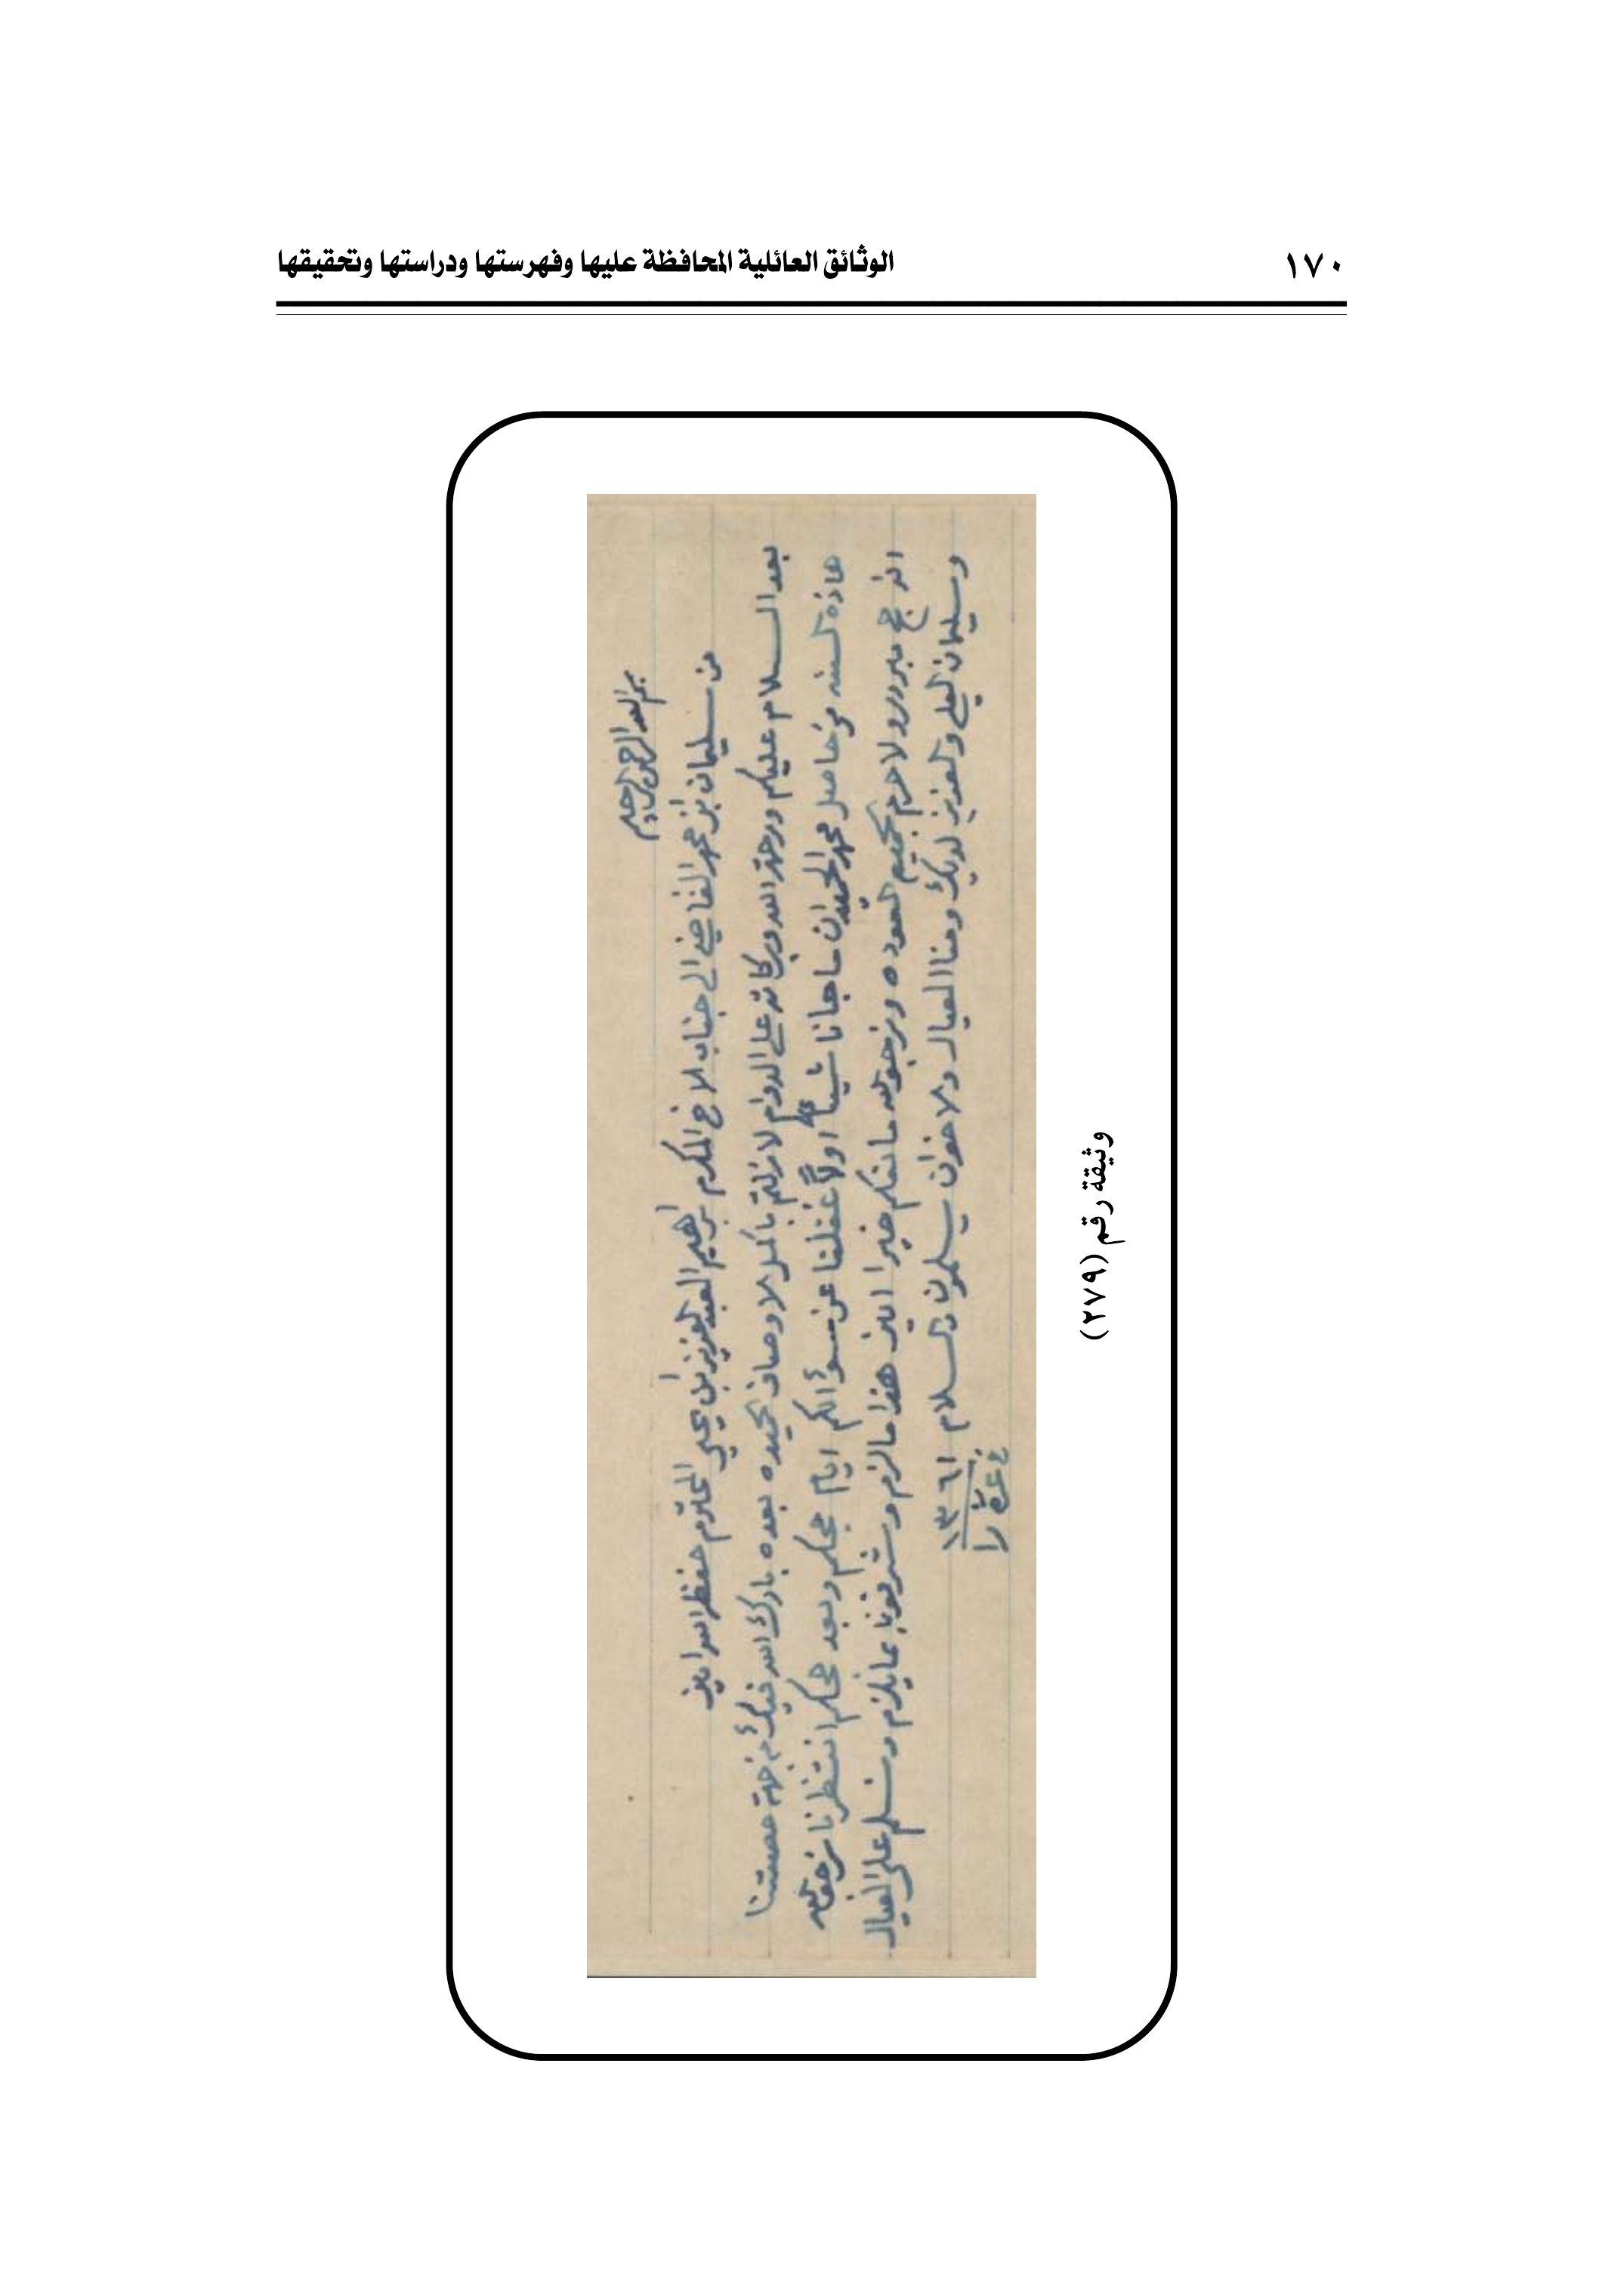 الوثائق العائلية المحافظة عليها وفهرستها ودراستها وتحقيقها ١٧٠
بسم الله الرحمن الرحيم
من سليمان بن محمد القاضي الى جناب الاخ المكرم ابرهيم العبد العزيز بن يحيى المحترم حفظه الله امين
بعد السلام عليكم ورحمة الله وبركاته على الدوام لا زلتم باكمل الاوصاف الحميده بعده بارك الله فيك من جهة حصتنا
هاذه السنه من حاصل محمد الحميدان ما جانا شيئا اولا غفلنا عن سؤالكم ايام حجكم وبعد حجكم انتظرنا نرجو الله
انه حج مبرور ولا حرم الجميع العوده ونرجو الله ما نفقدكم خيرا امين هذا ما لزم وشرفونا بما يلزم ونسلم على العيال
وسليمان العلي والعزيز لديك ومنا العيال والاخوان يسلمون والسلام ١٣٦١
في غرة را
وثيقة رقم (٢٧٩)